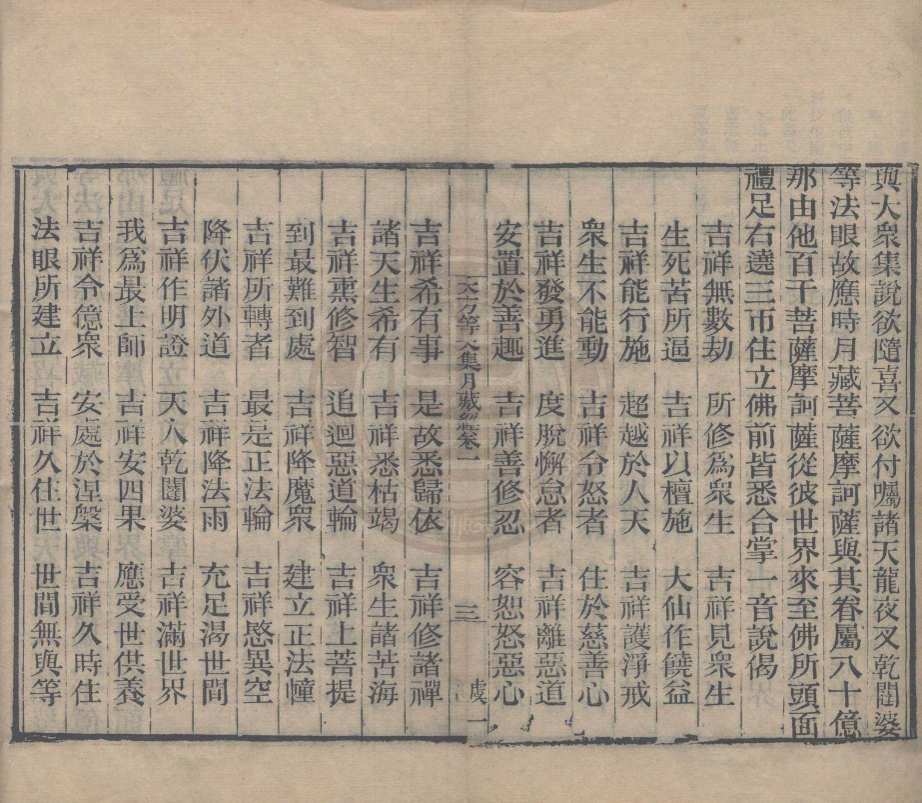 與大衆集說欲隨喜又欲付囑諸天龍夜叉乾闥婆
等法眼故應時月藏菩薩摩訶薩與其眷屬八十億
那由他百千菩薩摩訶薩從彼世界來至佛所頭面
禮足右遶三帀住立佛前皆悉合掌一音說偈
吉祥無數劫　所修爲衆生　吉祥見衆生
生死苦所逼　吉祥以檀施　大仙作饒益
吉祥能行施　超越於人天　吉祥護淨戒
衆生不能動　吉祥令怒者　住於慈善心
吉祥發勇進　度脫懈怠者　吉祥離惡道
安置於善趣　吉祥善修忍　容恕怒惡心
大方等大集月藏經卷一　三　虞一
吉祥希有事　是故悉歸依　吉祥修諸禪
諸天生希有　吉祥悉枯竭　衆生諸苦海
吉祥熏修智　追迴惡道輪　吉祥上菩提
到最難到處　吉祥降魔衆　建立正法幢
吉祥所轉者　最是正法輪　吉祥愍異空
降伏諸外道　吉祥降法雨　充足渴世間
吉祥作明證　天人乾闥婆　吉祥滿世界
我爲最上師　吉祥安四果　應受世供養
吉祥令億衆　安處於涅槃　吉祥久時住
法眼所建立　吉祥久住世　世間無與等